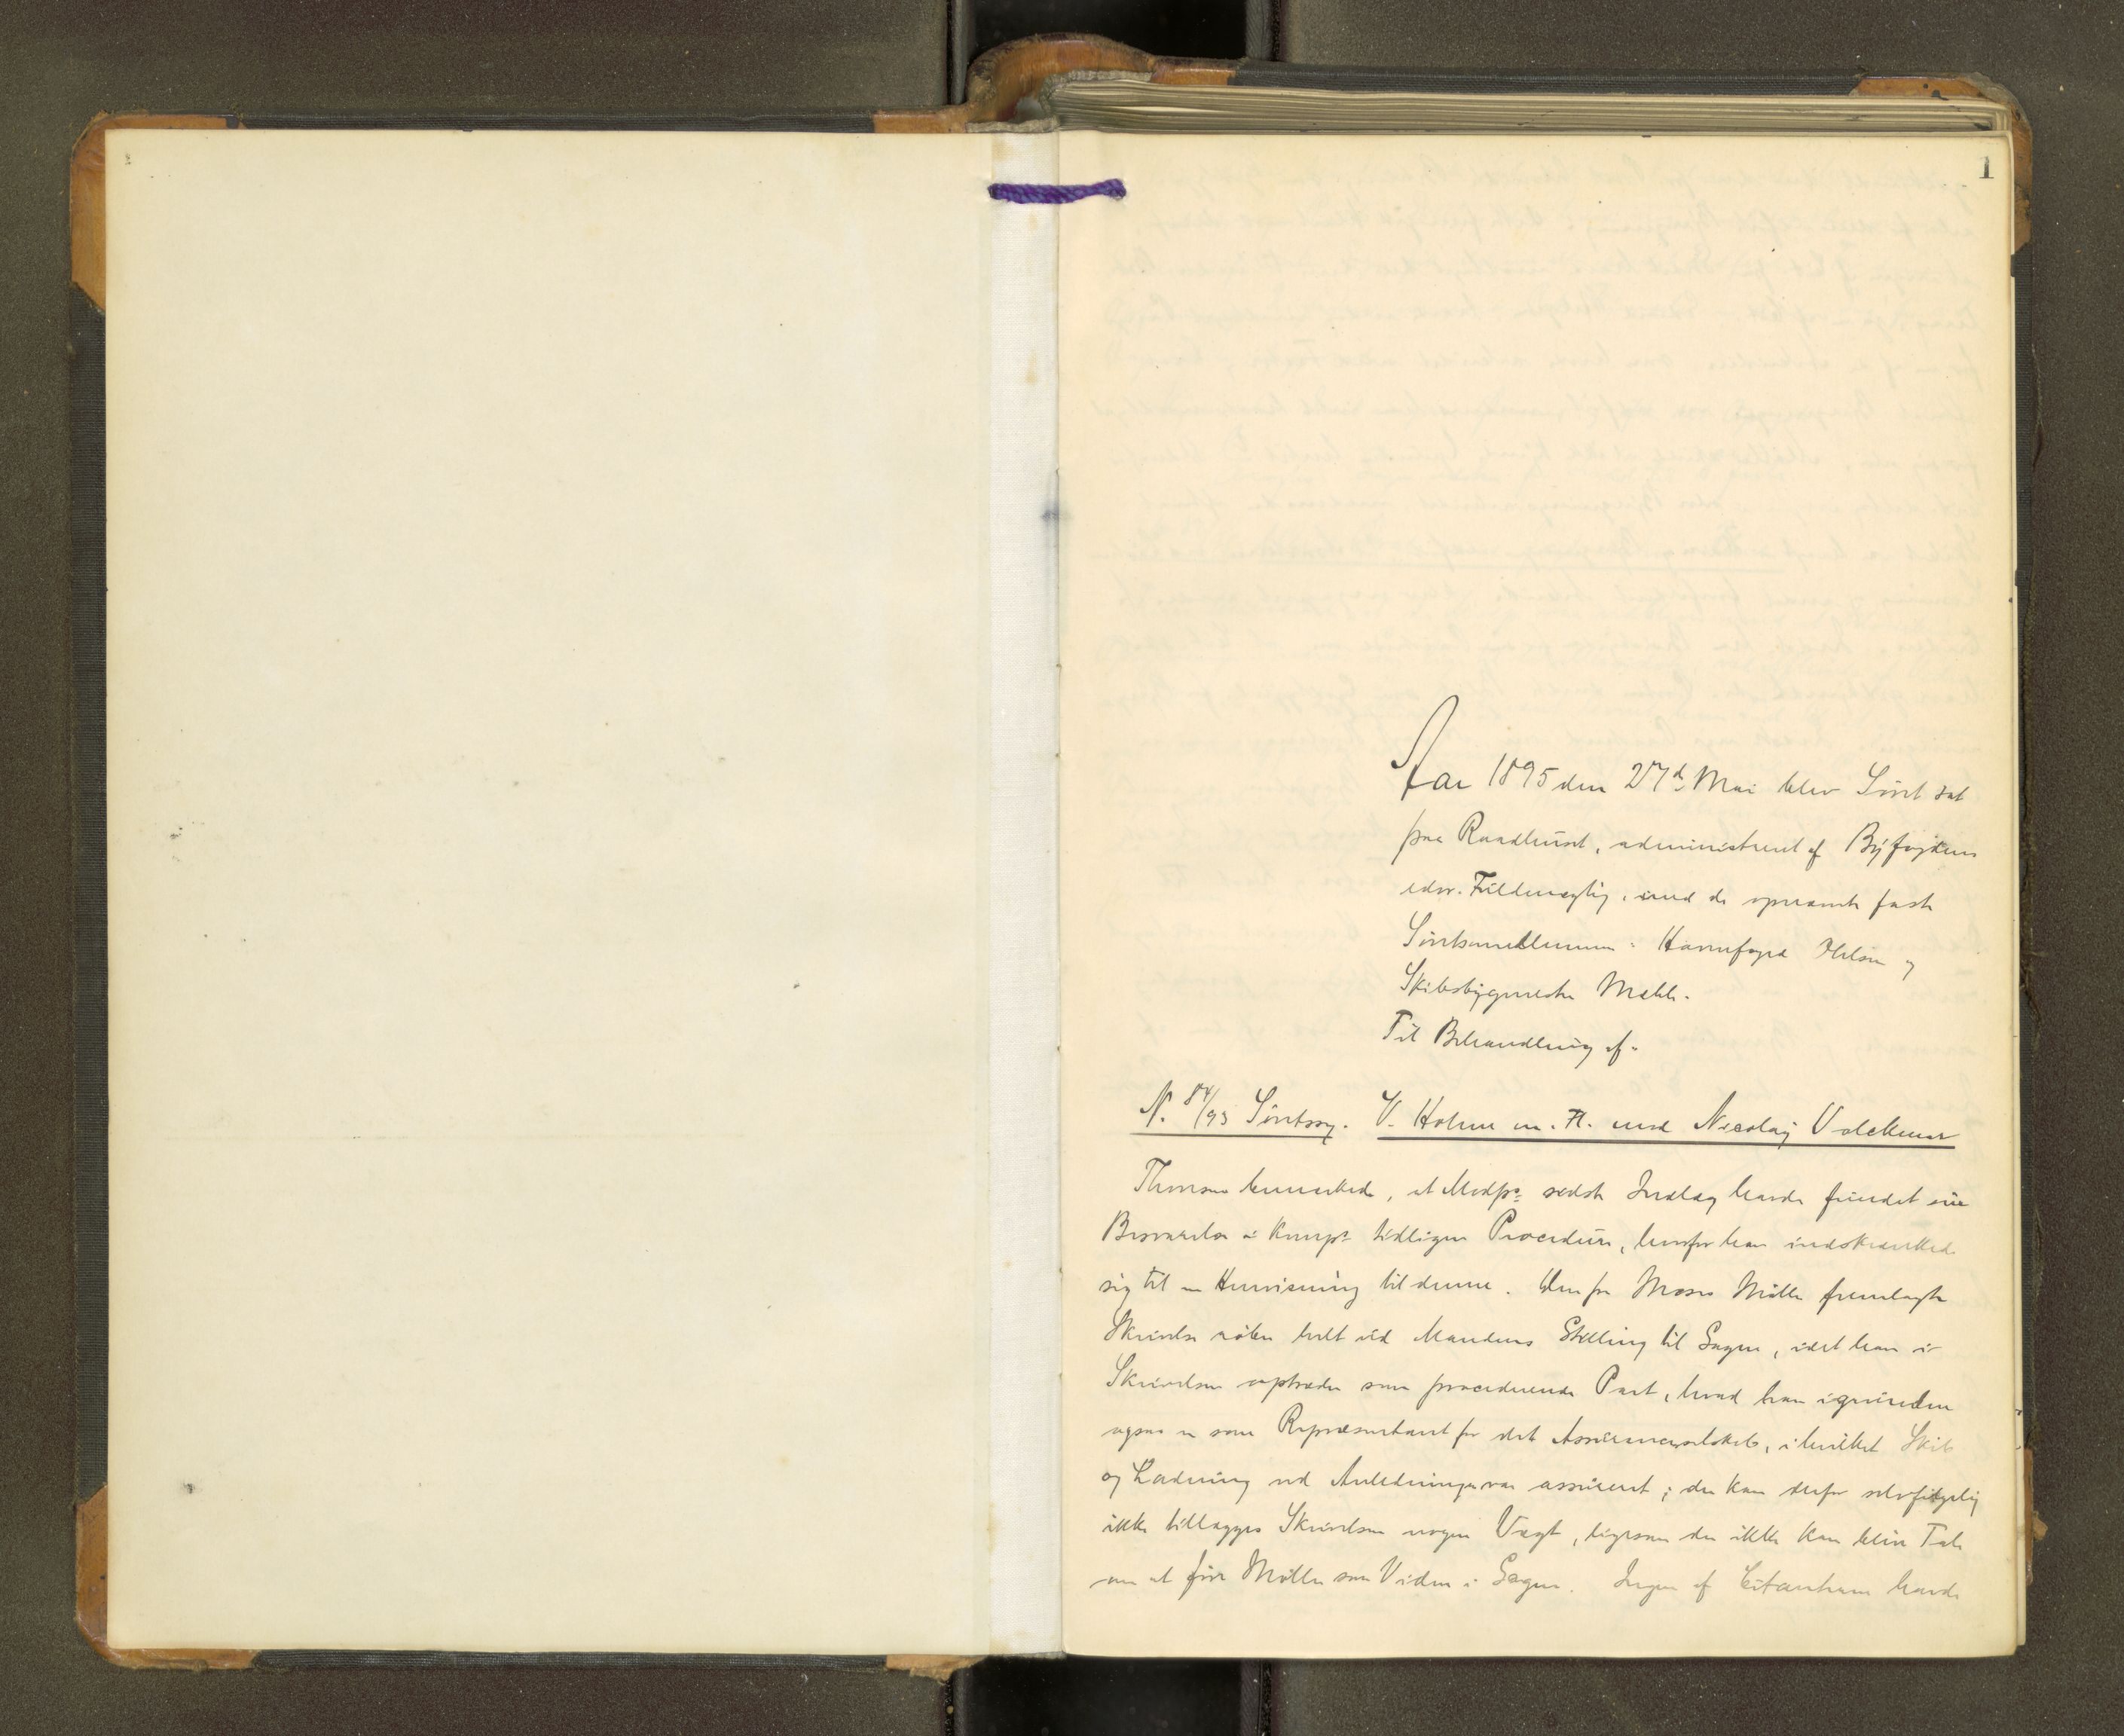 1
Aar 1895 den 27d. Mai blev Søret sat
paa Raadhuset, administreret af Byfogdens
edsv. Fuldmægtig, med de opnævnte faste
Søretsmedlemmer: Havnefoged Olsen og
Skibsbygmester
Til Behandling af.
N. 84/93 Søretssag. V. Holme m. Fl. mod Nicolay Valckmar
Thomsen bemærkede, at Modp.s sidste Indlæg havde fundet sin
Besvarelse i Komp.s tidligere Procedure, hvorfor han indskrænkede
sig til en Henvisning til denne. Den fra Moses Møller fremlagte
Skrivelse røber helt ud Mandens Stilling til Sagen, idet han i
Skrivelsen optræder som procederende Part, hvad han igrunden
ogsaa er som Repræsentant for det Assuranceselskab, i hvilket Skib
og Ladning ved Anledningen var assureret; der kan derfor selvfølgelig
ikke tillægges Skrivelsen nogen Vægt, ligesom der ikke kan blive Tale
om at føre Møller som Vidne i Sagen. Ingen af Citanterne havde